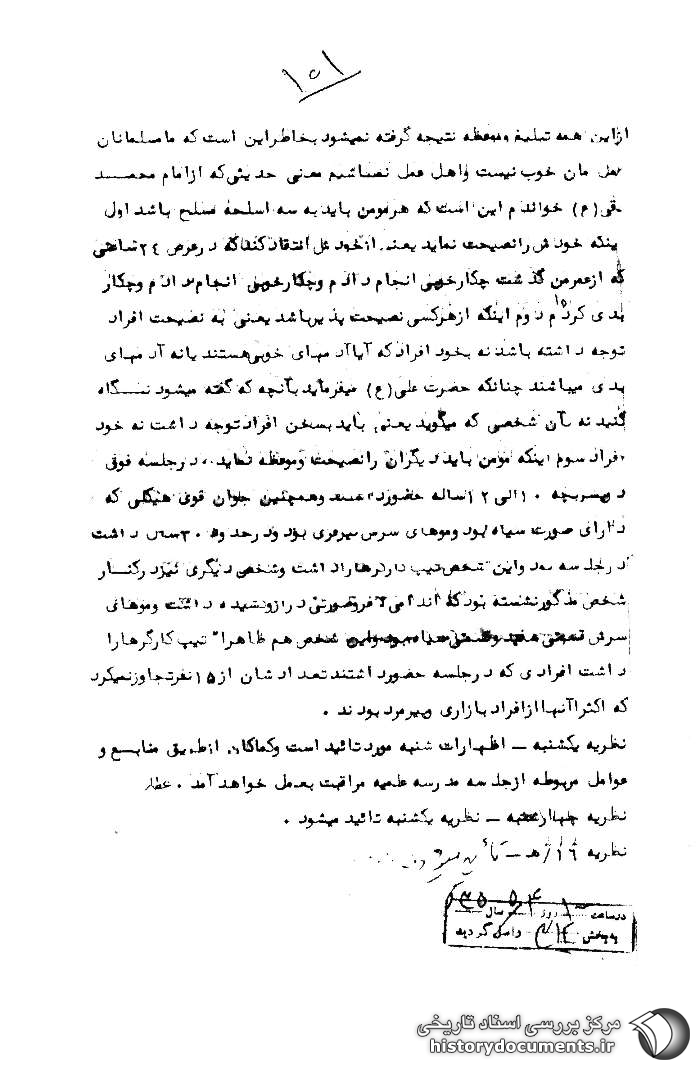 ۱۵۱
از این همه تبلیغ وموعظه نتیجه گرفته نمیشود بخاطر این است که ما مسلمانان
عمل مان خوب نیست واهل عمل نمیباشیم معنی حدیثی که از امام محمد
تقی (ع) خواندم این است که هر مومن باید به سه اسلحه مسلح باشد اول
اینکه خودش را نصیحت نماید یعنی از خودش انتقاد کند که در عرض ۲۴ ساعتی
که از عمر من گذشت چکار خوبی انجام دادم وچکار خوبی انجام ندادم وچکار
بدی کردم دوم اینکه از هر کسی نصیحت پذیر باشد یعنی به نصیحت افراد
توجه داشته باشد نه بخود افراد که آیا آدمهای خوبی هستند یا نه آدمهای
بدی میباشند چنانکه حضرت علی (ع) میفرماید بآنچه که گفته میشود نگاه
کنید نه بآن شخصی که میگوید یعنی باید بسخن افراد توجه داشت نه خود
افراد سوم اینکه مومن باید دیگران را نصیحت وموعظه نماید. در جلسه فوق
دو پسربچه ۱۰ الی ۱۲ ساله حضور داشتند وهمچنین جوان قوی هیکلی که
دارای صورت سیاه بود وموهای سرش فرفری بود ودر حدود ۳۰ سن داشت
در جلسه بود واین شخص تیپ کارگرها را داشت وشخص دیگری نیز در کنار
شخص مذکور نشسته بود که اندامی لاغر وصورتی دراز وکشیده داشت وموهای
سرش این شخص هم ظاهرا" تیپ کارگرها را
داشت افرادی که در جلسه حضور داشتند تعدادشان از ۱۵ نفر تجاوز نمیکرد
که اکثر آنها از افراد بازاری وپیرمرد بودند .
نظریه یکشنبه ــ اظهارات شنبه مورد تائید است وکماکان از طریق منابع و
عوامل مربوطه از جلسه مدرسه علمیه مراقبت بعمل خواهد آمد . عطار
نظریه چهارشنبه ــ نظریه یکشنبه تائید میشود .
نظریه ۱۶/هـ ــ
در ساعت روز سال
به بخش واصل گردید
مرکز بررسی اسناد تاریخی
historydocuments.ir